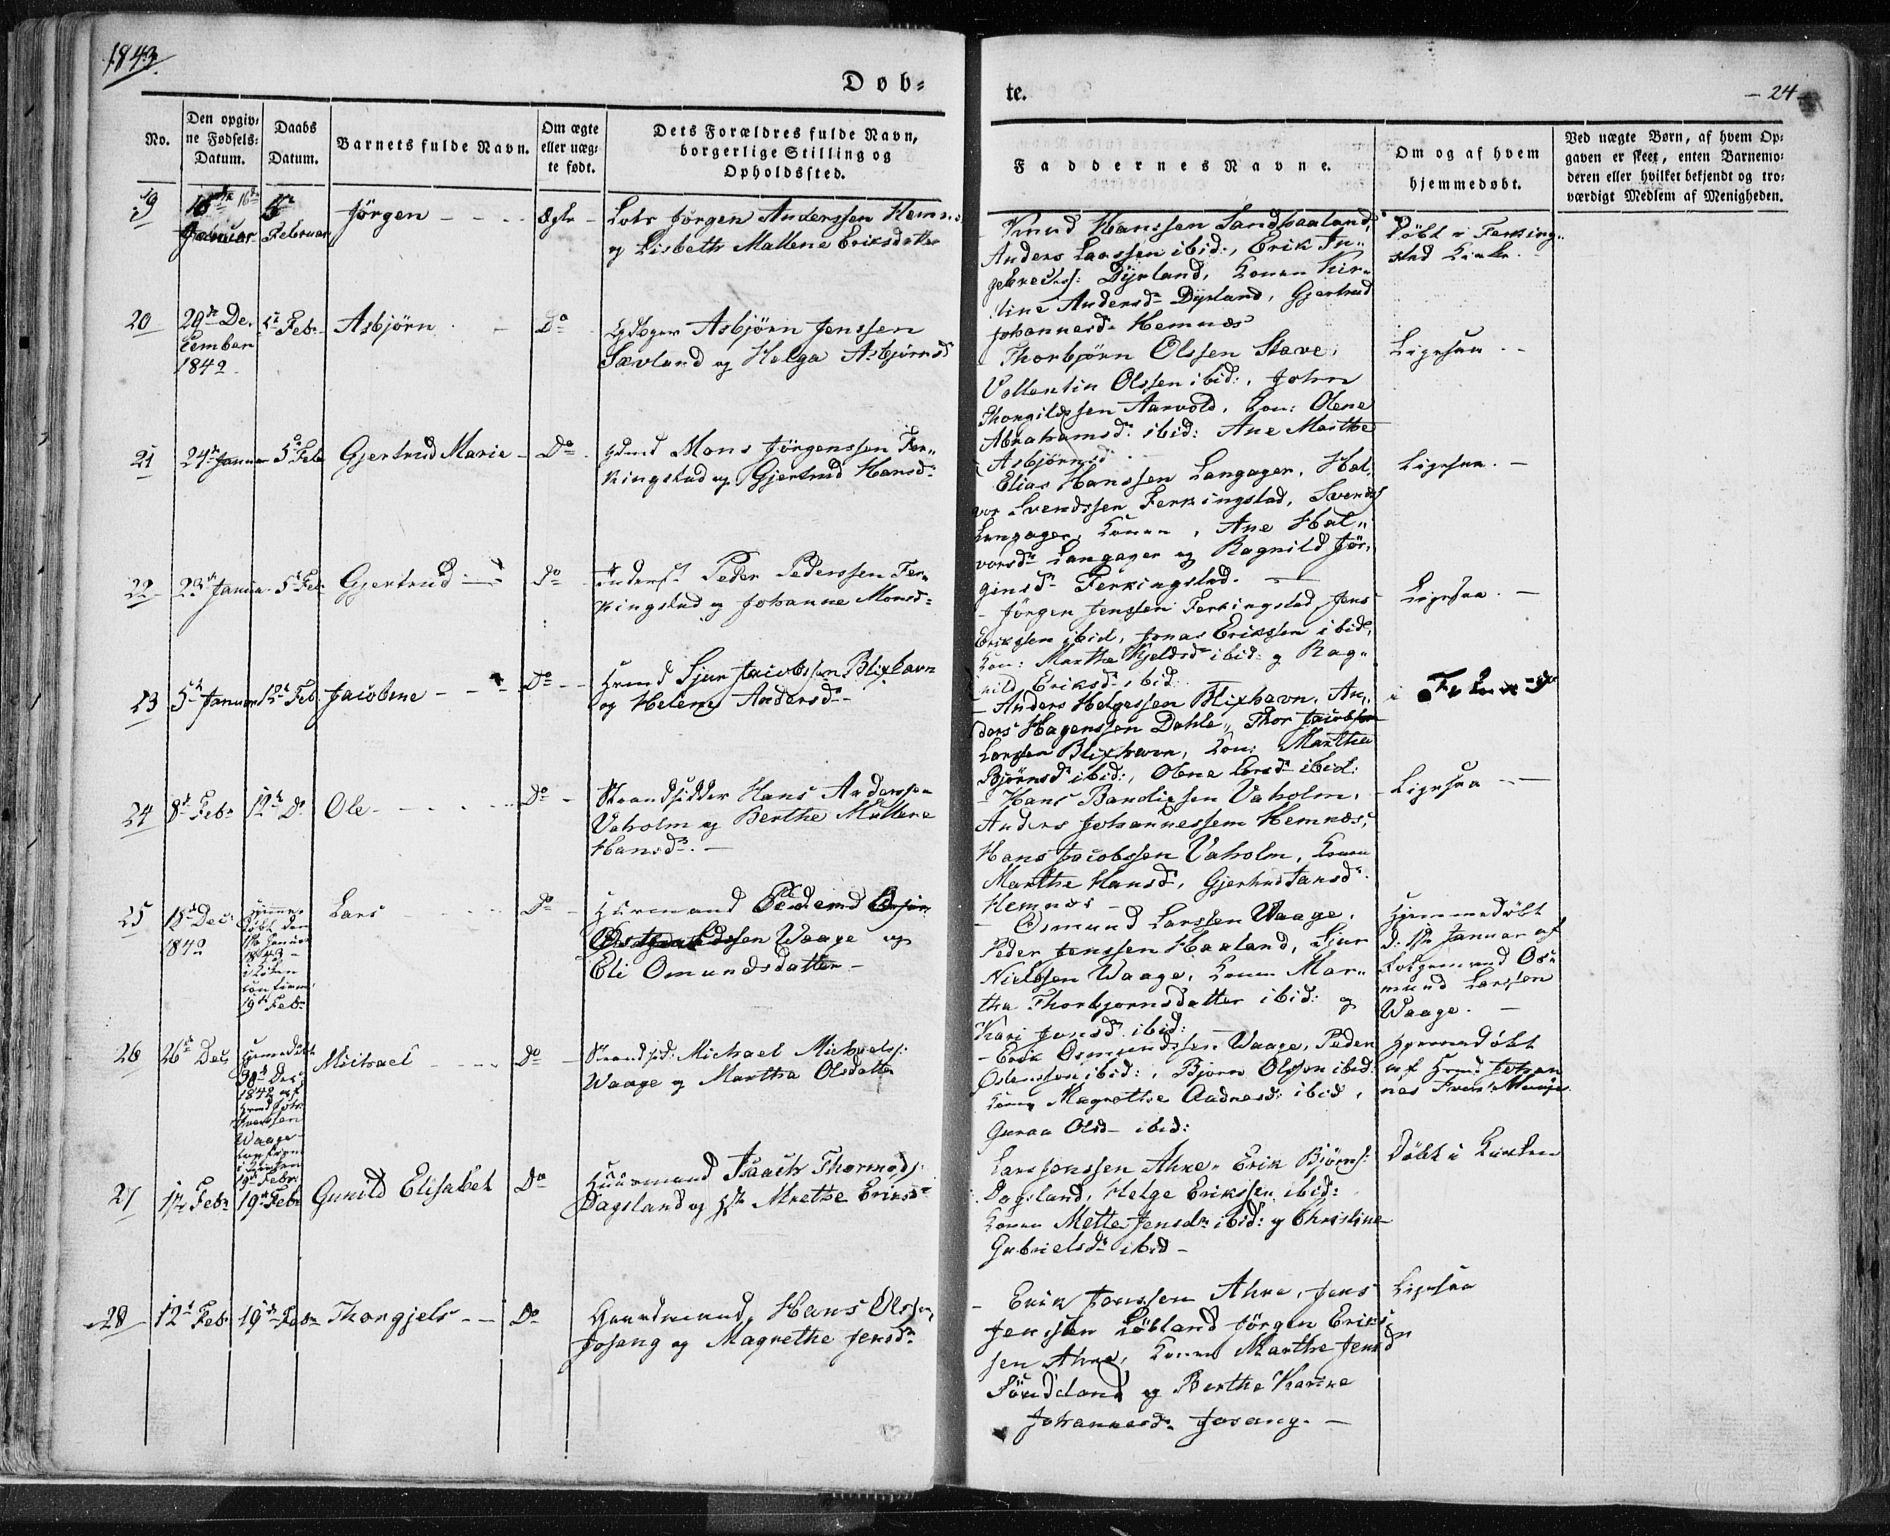 1843.
Døb-
te.
- 24 -
No.
Den opgiv-
ne Fødsels-
Datum.
Daabs
Datum.
Barnets fulde Navn.
Om ægte
eller uæg-
te født.
Dets Forældres fulde Navn,
borgerlige Stilling og
Opholdssted.
Faddernes Navne.
Om og af hvem
hjemmedøbt.
Ved uægte Børn, af hvem Op-
gaven er skeet, enten Barnemo-
deren eller hvilket bekjendt og tro-
værdigt Medlem af Menigheden.
19
16de
Januar
5te
Februar
Jörgen
Ægte
Lots Jörgen Anderssen Hemn:
og Lisbeth Mallene Eriksdatter
Knud Hanssen Sandhaaland,
Anders Larssen ibid:, Erik In-
gebretss: Dyrland, Konen Kir-
stine Andersd: Dyrland, Gjertrud
Johannesd: Hemnæs
Döbt i Ferking-
stad Kirke.
20
29de De-
cember
1842
5te Feb:
Asbjörn
Do
Asbjörn Jenssen
Sævland og Helga Asbjörnsd
Thorbjörn Olssen Stave,
Vallentin Olssen ibid:, John
Thorgilssen Aarvold, Kon: Olene
Abrahamsd: ibid: Ane Marthe
Asbjörnsd
Ligesaa
21
24de Januar
5te Feb
Gjertrud Marie
Do
Gmd Mons Jörgenssen Fer-
kingstad og Gjertrud Hansd:
Elias Hanssen Langager, Hal-
vor Svendssen Ferkingstad, Svend
Langager, Konen, Ane Hal-
vorsd: Langager og Ragnild Jör-
ginsd: Ferkingstad.
Ligesaa.
22
23de Januar
5te Feb
Gjertrud
Do
Inderst Peder Pederssen Fer-
kingstad og Johanne Monsd:
Jörgen Jenssen Ferkingstad, Jens
Erikssen ibid, Jonas Erikssen ibid,
Kon: Marthe Kjeldsd: ibid: og Rag-
nild Eriksd: ibid.
Ligesaa.
23
5te Januar
12te Feb.
Jacobine
Do
Hmnd Sjur Jacobssen Blixhavn
og Helene Andersd:
Anders Helgessen Blixhavn, An-
ders Hagenssen Dahle, Thor Jacobsen
Larssen Blixhavn, Kon: Marthe
Björnsd: ibid:, Olene Larsd: ibid:
24
8de Feb:
12te Do
Ole
Do
Strandsidder Hans Anderssen
Vaholm og Berthe Mallene
Hansd:
Hans Bandixsen Vaholm,
Anders Johannessen Hemnæs,
Hans Jacobssen Vaholm, Konen
Marthe Hansd:, Gjertrud Jansd:
Hemnæs
Ligesaa
25
15de Dec:
1842
Hjemme-
döbt den
1ste Januar
1843
i Kirken
19de Feb:
Lars
Do
Huusmand
Waage og
Eli Omundsdatter
Osmund Larssen Waage,
Peder Jenssen Haaland, Sjur
Nielssen Waage, Konen Mar-
tha Thorbjornsdatter ibid: og
Kari Jonsd: ibid:
Hjemmedöbt
d: 1ste Januar af
Os-
mund Larssen
Waage.
26
26de Dec
Hjemmedöbt
30de Dec:
1842 af
Waage
i Kirken
19de Feb:
Michael
Do
Strandsid: Michael Michaels:
Waage og Martha Olsdatter
Erik Osmundssen Waage, Peder
Ostenssen ibid:, Bjorn Olsson ibid:
Konen Magrethe Aadnesd: ibid,
Guraa Olsd: ibid:
Hjemmedöbt
af Hmd Johan-
nes Waage
27
1ste Feb:
19de Feb:
Gunild Elisabet
Do
Huusmand Isaach Thormods:
Dagsland og Hst: Mrethe Eriksd:
Lars Jonssen Ahre, Erik Bjorns:
Dagsland, Helge Erikssen ibid:
Konen Mette Jensd: ibid: og Christine
Gabrielsd: ibid
Döbt i Kirken
28
12te Feb:
19de Feb:
Thorgjels
Do
Gaardmand, Hans Olssen,
Josang og Magrethe Jensd:
Erik Jonssen Ahre, Jens
Jenssen Jörgen Eriks-
sen Ahre, Konen Marthe Jensd
og Berthe Karine
Johannesd: Josang.
Ligesaa